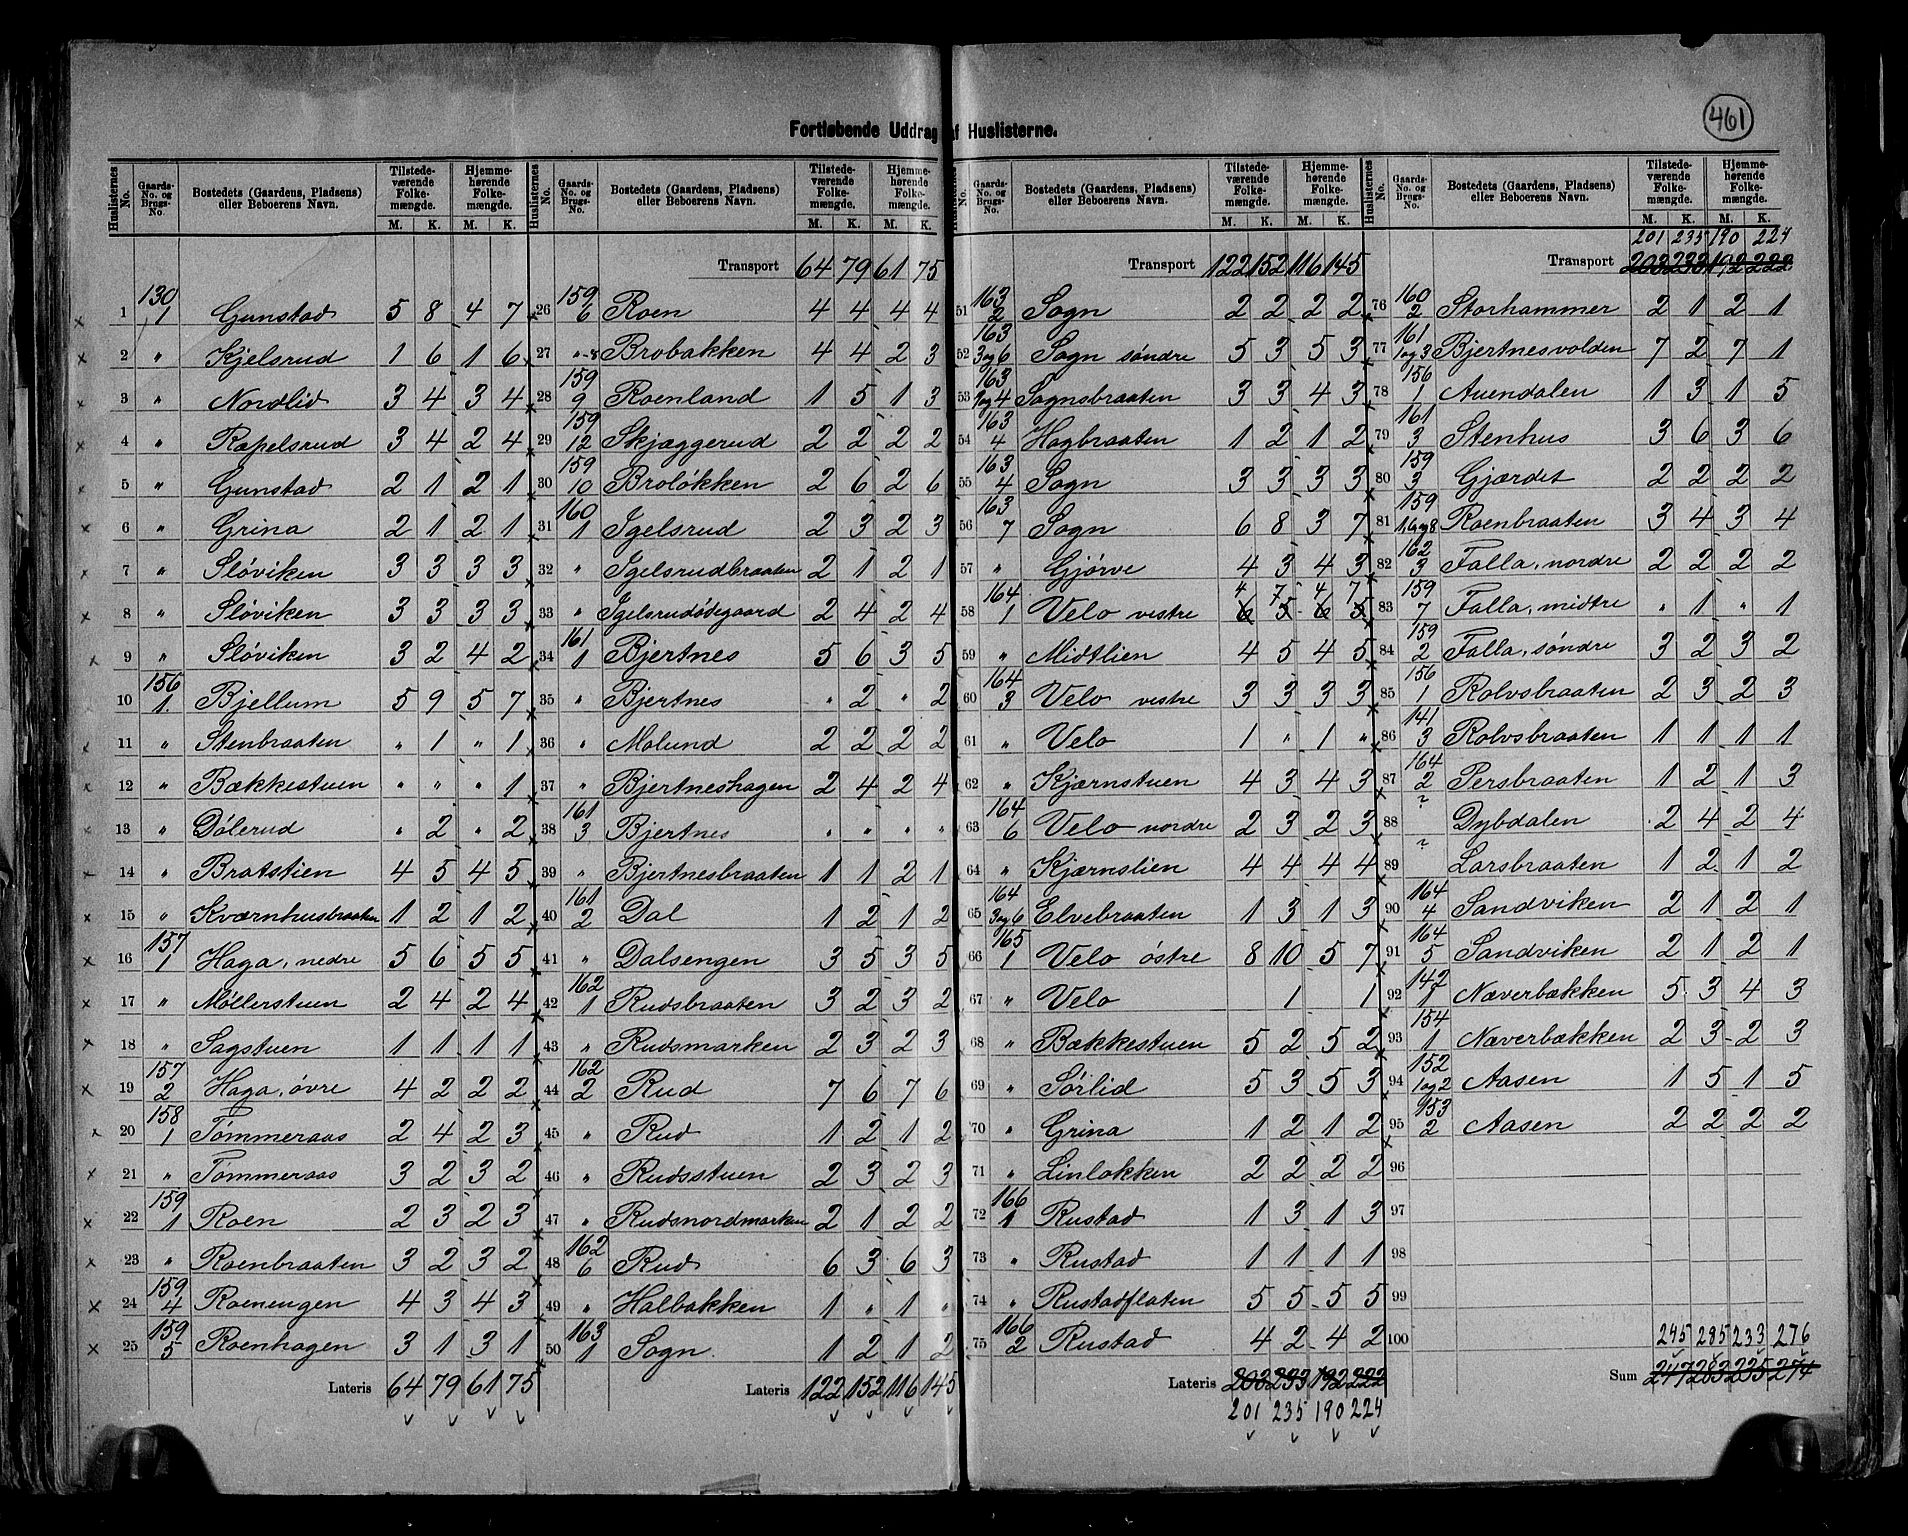 461
Fortløbende Uddrag af Huslisterne.
Huslisternes No. | Gaards-No. og Brugs-No. | Bostedets (Gaardens, Pladsens) eller Beboerens Navn. | Tilstedeværende Folkemængde. M. K. | Hjemmehørende Folkemængde. M. K.
1 130/1 Gunstad 5 8 4 7
2 " Kjelsrud 1 6 1 6
3 " Nordlid 3 4 3 4
4 " Ræpelsrud 3 4 2 4
5 " Gunstad 2 1 2 1
6 " Grina 2 1 2 1
7 " Sløviken 3 3 3 3
8 " Sløviken 3 3 3 3
9 " Sløviken 3 2 4 2
10 156/1 Bjellum 5 9 5 7
11 " Stenbraaten " 1 " 1
12 " Bækkestuen " " " 1
13 " Dølerud " 2 " 2
14 " Bratstien 4 5 4 5
15 " Kværnhusbraaten 1 2 1 2
16 157/1 Haga, nedre 5 6 5 5
17 " Møllerstuen 2 4 2 4
18 " Sagstuen 1 1 1 1
19 157/2 Haga, øvre 4 2 2 2
20 158/1 Tømmeraas 2 4 2 3
21 " Tømmeraas 3 2 3 2
22 159/1 Roen 2 3 2 3
23 " Roenbraaten 3 2 3 2
24 159/4 Roenengen 4 3 4 3
25 159/5 Roenhagen 3 1 3 1
Lateris 64 79 61 75
Huslisternes No. | Gaards-No. og Brugs-No. | Bostedets (Gaardens, Pladsens) eller Beboerens Navn. | Tilstedeværende Folkemængde. M. K. | Hjemmehørende Folkemængde. M. K.
Transport 64 79 61 75
26 159/6 Roen 4 4 4 4
27 "-8 Brobakken 4 4 2 3
28 159/9 Roenland 1 5 1 3
29 159/12 Skjæggerud 2 2 2 2
30 159/10 Broløkken 2 6 2 6
31 160/1 Igelsrud 2 3 2 3
32 " Igelsrudbraaten 2 1 2 1
33 " Igelsrudødegaard 2 4 2 4
34 161/1 Bjertnes 5 6 3 5
35 " Bjertnes " 2 " 2
36 " Molund 2 2 2 2
37 " Bjertneshagen 2 4 2 4
38 161/3 Bjertnes " " " "
39 " Bjertnesbraaten 1 1 2 1
40 161/2 Dal 1 2 1 2
41 " Dalsengen 3 5 3 5
42 162/1 Rudsbraaten 3 2 3 2
43 " Rudsmarken 2 3 2 3
44 162/2 Rud 7 6 7 6
45 " Rud 1 2 1 2
46 " Rudsstuen 2 3 2 3
47 " Rudsnordmarken 2 1 2 2
48 162/6 Rud 6 3 6 3
49 " Halbakken 1 " 1 "
50 163/1 Sogn 1 2 1 2
Lateris 122 152 116 145
No. | Gaards-No. og Brugs-No. | Bostedets (Gaardens, Pladsens) eller Beboerens Navn. | Tilstedeværende Folkemængde. M. K. | Hjemmehørende Folkemængde. M. K.
Transport 122 152 116 145
51 163/2 Sogn 2 2 2 2
52 163/3og6 Sogn søndre 5 3 5 3
53 163/1og4 Sognsbraaten 3 3 4 3
54 163/4 Hagbraaten 1 2 1 2
55 163/4 Sogn 3 3 3 3
56 163/7 Sogn 6 8 3 7
57 " Gjørve 4 3 4 3
4 7 4 7
58 164/1 Velo vestre 6 5 6 5
59 " Midtlien 4 5 4 5
60 164/3 Velo vestre 3 3 3 3
61 " Velo 1 " 1 "
62 " Kjærnstuen 4 3 4 3
63 164/6 Velo nordre 2 3 2 3
64 " Kjærnslien 4 4 4 4
65 164/3og6 Elvebraaten 1 3 1 3
66 165/1 Velo østre 8 10 5 7
67 " Velo 1 1
68 " Bækkestuen 5 2 5 2
69 " Sørlid 5 3 5 3
70 " Grina 1 2 1 2
71 " Linløkken 2 2 2 2
72 166/1 Rustad 1 3 1 3
73 " Rustad 1 1 1 1
74 " Rustadflaten 5 5 5 5
75 166/2 Rustad 4 2 4 2
Lateris 203 233 192 222
201 235 190 224
Huslisternes No. | Gaards-No. og Brugs-No. | Bostedets (Gaardens, Pladsens) eller Beboerens Navn. | Tilstedeværende Folkemængde. M. K. | Hjemmehørende Folkemængde. M. K.
201 235 190 224
Transport 203 233 192 222
76 160/2 Storhammer 2 1 2 1
77 161/1og3 Bjertnesvolden 7 2 7 1
78 156/1 Auendalen 1 3 1 5
79 161/3 Stenhus 3 6 3 6
80 159/3 Gjærdet 2 2 2 2
81 159/1og8 Roenbraaten 3 4 3 4
82 162/3 Falla, nordre 2 2 2 2
83 159/7 Falla, midtre " 1 " 1
84 159/2 Falla, søndre 3 2 3 2
85 156/1 Rolvsbraaten 2 3 2 3
86 141/3 Rolvsbraaten 1 1 1 1
87 164/2 Persbraaten 1 2 1 3
88 ? Dybdalen 2 4 2 4
89 ? Larsbraaten 1 2 1 2
90 164/4 Sandviken 2 1 2 1
91 164/5 Sandviken 2 1 2 1
92 142/1 Næverbækken 5 3 4 3
93 154/1 Næverbækken 2 3 2 3
94 152/1og2 Aasen 1 5 1 5
95 153/2 Aasen 2 2 2 2
96
97
98
99
100
245 285 233 276
Sum 247 283 235 274